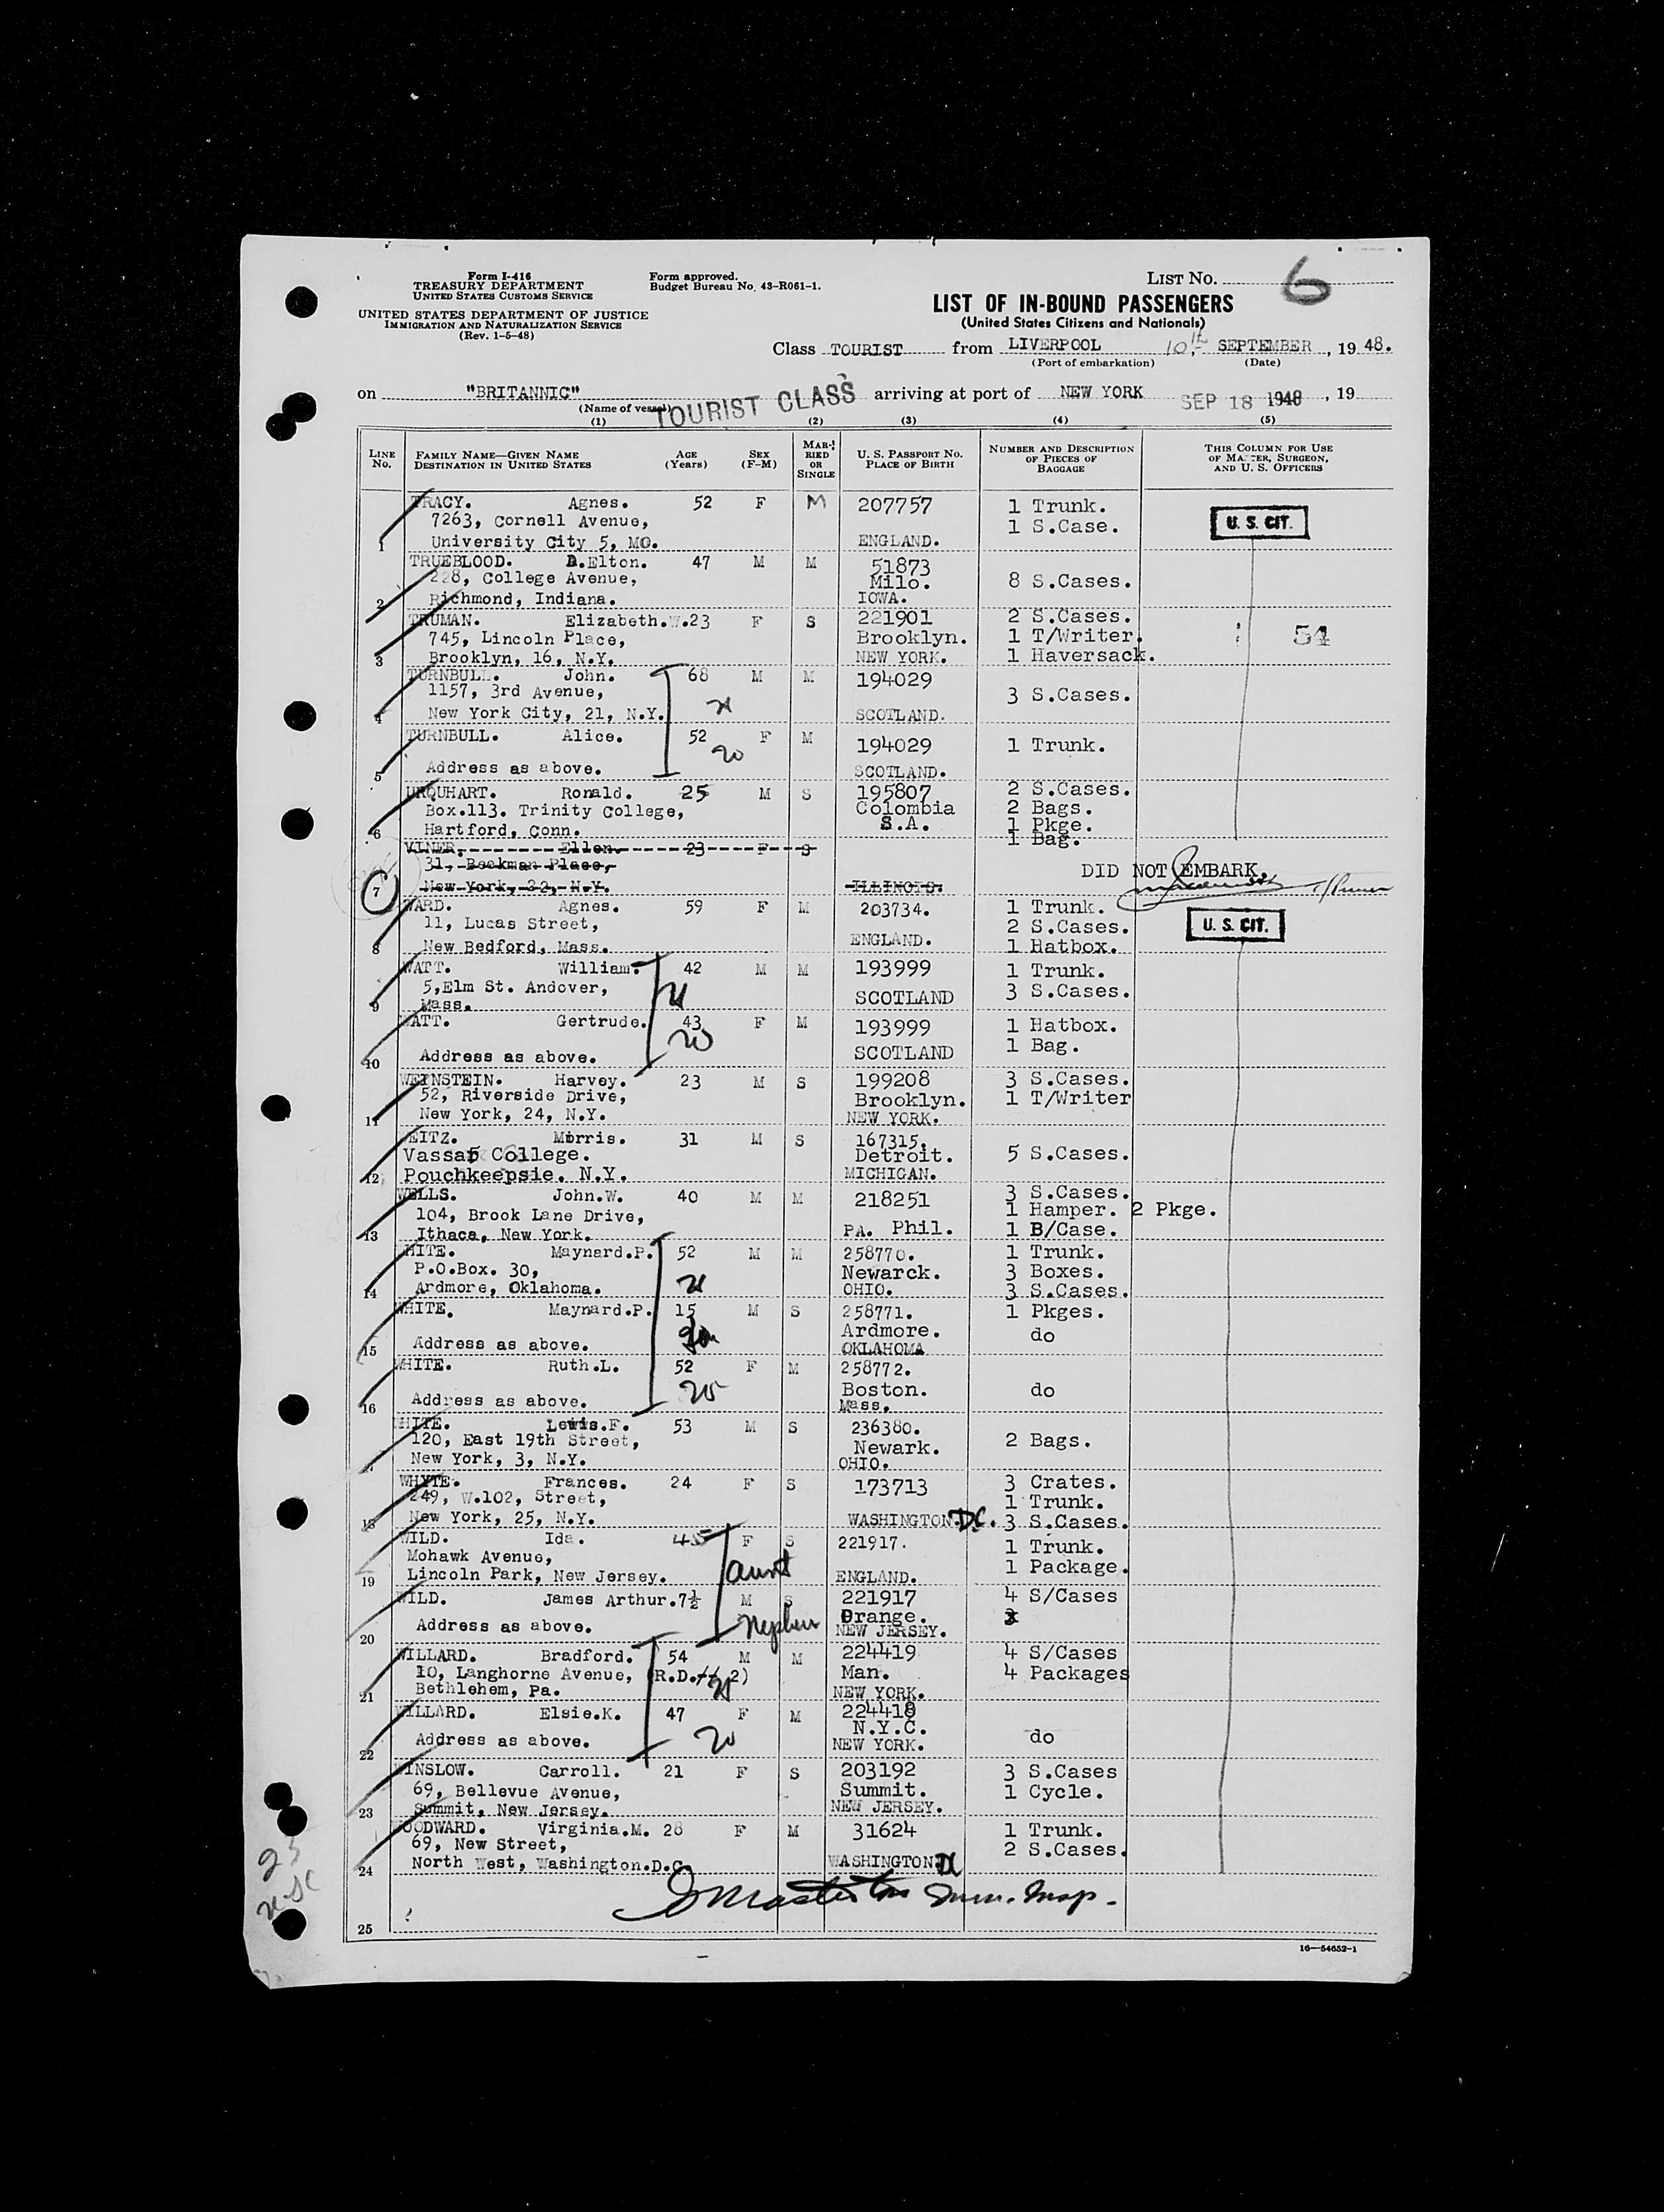 Form I-416
TREASURY DEPARTMENT
UNITED STATES CUSTOMS SERVICE
UNITED STATES DEPARTMENT OF JUSTICE
IMMIGRATION AND NATURALIZATION SERVICE
(Rev. 1-5-48)
Form approved.
Budget Bureau No. 43-R061-1.
LIST NO. 6
LIST OF IN-BOUND PASSENGERS
(United States Citizens and Nationals)
Class TOURIST from LIVERPOOL 10th, SEPTEMBER, 19 48.
(Port of embarkation) (Date)
on "BRITANNIC" TOURIST CLASS arriving at port of NEW YORK SEP 18 1948, 19
(Name of vessel)
(1) (2) (3) (4) (5)
LINE No. FAMILY NAME—GIVEN NAME DESTINATION IN UNITED STATES AGE (Years) SEX (F-M) MARRIED OR SINGLE U. S. PASSPORT NO. PLACE OF BIRTH NUMBER AND DESCRIPTION OF PIECES OF BAGGAGE THIS COLUMN FOR USE OF MASTER, SURGEON, AND U. S. OFFICERS
TRACY. Agnes. 52 F M 207757 1 Trunk.
7263, Cornell Avenue, 1 S.Case. U. S. CIT.
1 University City 5, MO. ENGLAND.
TRUEBLOOD. D.Elton. 47 M M 51873
228, College Avenue, Milo. 8 S.Cases.
2 Richmond, Indiana. IOWA.
TRUMAN. Elizabeth.W.23 F S 221901 2 S.Cases.
745, Lincoln Place, Brooklyn. 1 T/Writer. 54
3 Brooklyn, 16, N.Y. NEW YORK. 1 Haversack.
TURNBULL. John. 68 M M 194029
1157, 3rd Avenue, 3 S.Cases.
4 New York City, 21, N.Y. SCOTLAND.
TURNBULL. Alice. 52 F M 194029 1 Trunk.
5 Address as above. SCOTLAND.
URQUHART. Ronald. 25 M S 195807 2 S.Cases.
Box.113. Trinity College, Colombia 2 Bags.
6 Hartford, Conn. S.A. 1 Pkge.
1 Bag.
VINER. Ellen. 23 F S
31, Beekman Place, DID NOT EMBARK.
7 New York, 22, N.Y. ILLINOIS.
WARD. Agnes. 59 F M 203734. 1 Trunk.
11, Lucas Street, 2 S.Cases. U. S. CIT.
8 New Bedford, Mass. ENGLAND. 1 Hatbox.
WATT. William. 42 M M 193999 1 Trunk.
5,Elm St. Andover, SCOTLAND 3 S.Cases.
9 Mass.
WATT. Gertrude. 43 F M 193999 1 Hatbox.
10 Address as above. SCOTLAND 1 Bag.
WEINSTEIN. Harvey. 23 M S 199208 3 S.Cases.
52, Riverside Drive, Brooklyn. 1 T/Writer
11 New York, 24, N.Y. NEW YORK.
WEITZ. Morris. 31 M S 167315.
Vassar College. Detroit. 5 S.Cases.
12 Pouchkeepsie. N.Y. MICHIGAN.
WELLS. John.W. 40 M M 218251 3 S.Cases.
104, Brook Lane Drive, 1 Hamper. 2 Pkge.
13 Ithaca, New York. PA. Phil. 1 B/Case.
WHITE. Maynard.P. 52 M M 258770. 1 Trunk.
P.O.Box. 30, Newarck. 3 Boxes.
14 Ardmore, Oklahoma. OHIO. 3 S.Cases.
WHITE. Maynard.P. 15 M S 258771. 1 Pkges.
Ardmore. do
15 Address as above. Son OKLAHOMA
WHITE. Ruth.L. 52 F M 258772.
Boston. do
16 Address as above. Mass.
WHITE. Lewis.F. 53 M S 236380.
120, East 19th Street, Newark. 2 Bags.
New York, 3, N.Y. OHIO.
WHYTE. Frances. 24 F S 173713 3 Crates.
249, W.102, Street, 1 Trunk.
18 New York, 25, N.Y. WASHINGTON. D.C. 3 S.Cases.
WILD. Ida. 45 F S 221917. 1 Trunk.
Mohawk Avenue, Aunt 1 Package.
19 Lincoln Park, New Jersey. ENGLAND.
WILD. James Arthur.7½ M S 221917 4 S/Cases
Orange.
20 Address as above. Nephew NEW JERSEY.
WILLARD. Bradford. 54 M M 224419 4 S/Cases
10, Langhorne Avenue, (R.D.# 2) Man. 4 Packages
21 Bethlehem, Pa. NEW YORK.
WILLARD. Elsie.K. 47 F M 224418
N.Y.C. do
22 Address as above. NEW YORK.
WINSLOW. Carroll. 21 F S 203192 3 S.Cases
69, Bellevue Avenue, Summit. 1 Cycle.
23 Summit, New Jersey. NEW JERSEY.
WOODWARD. Virginia.M. 28 F M 31624 1 Trunk.
69, New Street, 2 S.Cases.
24 North West, Washington.D.C. WASHINGTON DC
25
16—54652-1